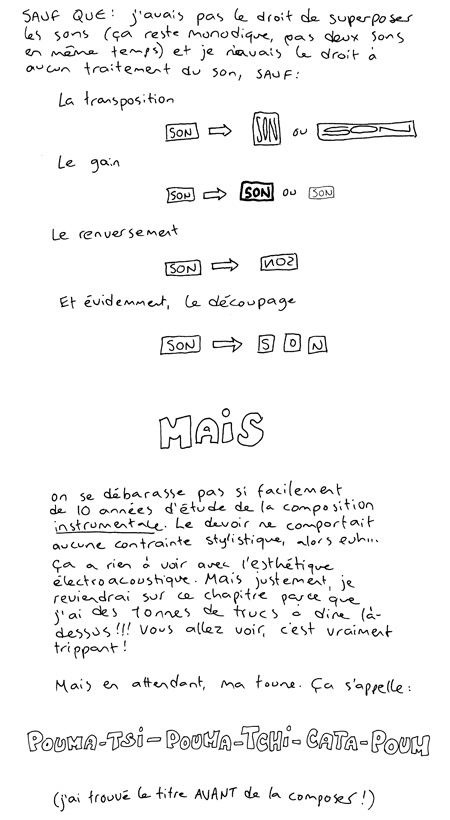 SAUF QUE: j'avais pas le droit de superposer
les sons (ça reste monodique, pas deux sons
en même temps) et je n'avais le droit à
aucun traitement du son, SAUF:
La transposition
SON ⇨ SON ou SON
Le gain
SON ⇨ SON ou SON
Le renversement
SON ⇨ NOS
Et évidemment, le découpage
SON ⇨ S O N
MAiS
on se débarasse pas si facilement
de 10 années d'étude de la composition
instrumentale. Le devoir ne comportait
aucune contrainte stylistique, alors euh...
ça a rien à voir avec l'esthétique
électroacoustique. Mais justement, je
reviendrai sur ce chapitre parce que
j'ai des tonnes de trucs à dire là-
dessus!!! Vous allez voir, c'est vraiment
trippant!
Mais en attendant, ma toune. Ça s'appelle:
POUMA-TSi-POUMA-TCHi-CATA-POUM
(j'ai trouvé le titre AVANT de la composer!)